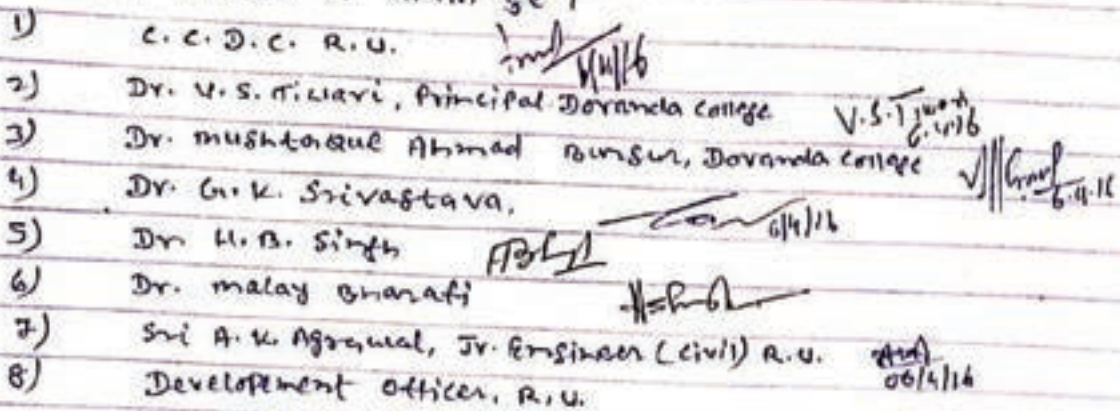 1) C. C. D. C. R. U.
2) Dr. V. S. Tiwari, Principal Doranda College V.S. Tiwari 6.4.16
3) Dr. Mushtaque Ahmad Bursur, Doranda College 6.4.16
4) Dr. G. K. Srivastava, 6/4/16
5) Dr H. B. Singh
6) Dr. Malay Bharati
7) Sri A. K. Agrawal, Jr. Engineer (Civil) R. U. 06/4/16
8) Development Officer, R. U.